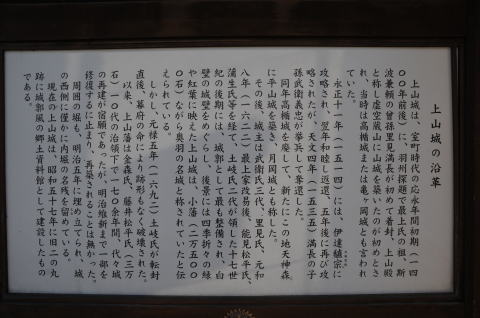 上山城の沿革
上山城は、室町時代の応永年間初期（一四
〇〇年前後）に、羽州探題で最上氏の祖、斯
波兼頼の曽孫里見満長が初めて着封、上山殿
と称し虚空蔵山に山城を築いたのが初めとさ
れ、当時は高楯城または亀ヶ岡城とも言われ
ていた。
永正十一年（一五一四）には、伊達稙宗に
攻略され、翌年和睦し返還、五年後に再び攻
略されたが、天文四年（一五三五）満長の子
孫武衛義忠が挙兵して奪還した。
同年高楯城を廃して、新たにこの地天神森
に平山城を築き、月岡城とも称した。
その後、城主は武衛氏三代、里見氏、元和
八年（一六二二）最上家改易後、能見松平氏、
蒲生氏等を経て、土岐氏二代が領した十七世
紀の後期には、城郭として最も整備され、白
壁の城壁をめぐらし、後景には四季折々の緑
や紅葉に映えた上山城は、小藩（二万五〇〇
〇石）ながら奥羽の名城と称されていたと伝
えられている。
しかし、元禄五年（一六九二）土岐氏が転封
直後、幕府の命により跡形もなく破壊された。
以来、上山藩は金森氏、藤井松平氏（三万
石）一〇代の治領下で一七〇余年間、代々城
の再建が宿願であったが、明治維新まで一部を
修復するに止まり、再築されることは無かった。
周囲の堀も、明治五年に埋め立てられ、城
の西側に僅かに内堀の名残を留めている。
現在の上山城は、昭和五十七年に旧二の丸
跡に城郭風の郷土資料館として建設したもの
である。